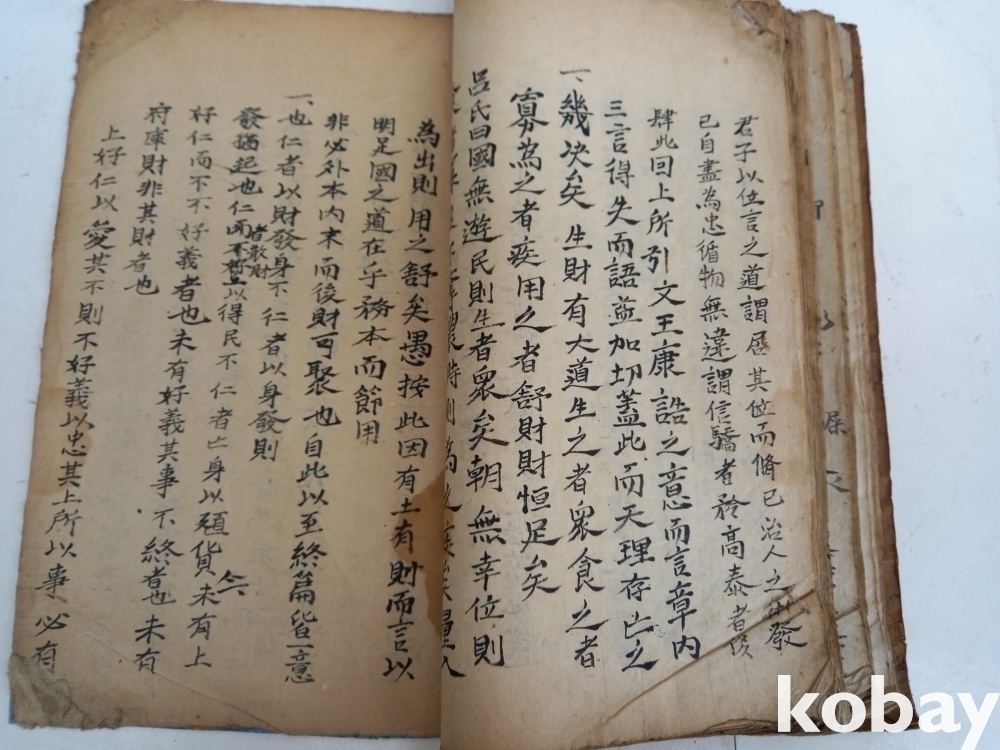 君子以位言之道謂居其位而脩己治人之發
己自盡為忠循物無違謂信驕者矜高泰者侈
肆此回上所引文王康誥之意而言章內
三言得失而語益加切蓋此而天理存亡之
一、幾决矣 生財有大道生之者眾食之者
寡為之者疾用之者舒財財恒足矣
呂氏曰國無遊民則生者眾矣朝無幸位則
時則為之疾矣量入
為出則用之舒矣愚按此因有土有則而言以
明足國之道在乎務本而節用
非必外本內末而後財可聚也自此以至終篇皆一意
一、也仁者以財發身不仁者以身發則
發猶起也仁者散財以得民不仁者亡身以殖貨未有上
好仁而不不好義者也未有好義其事不終者也未有
府庫財非其財者也
上好仁以愛其不則不好義以忠其上所以事必有
kobay